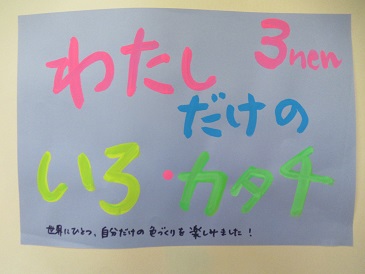 3nen
わたし
だけの
いろ・カタチ
世界にひとつ、自分だけの色づくりを楽しみました！